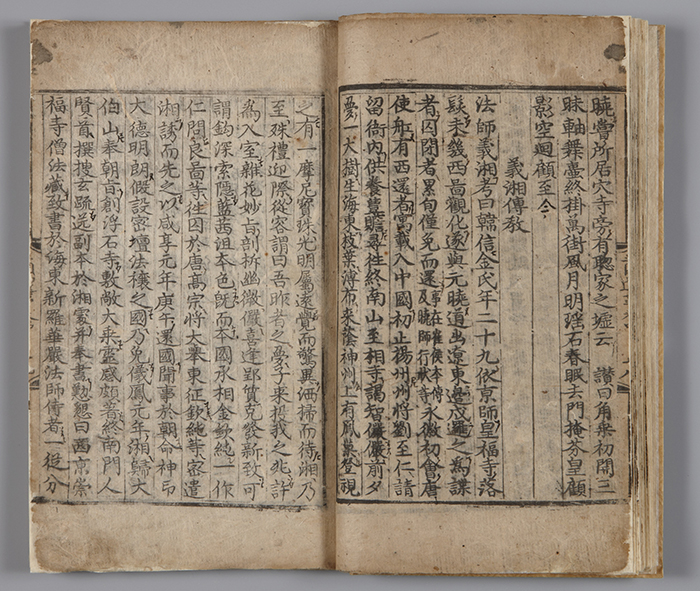 曉嘗所居穴寺旁有聰家之墟云 讚曰角乘初開三
昧軸舞壺終掛萬街風月明瑤石春眠去門掩芬皇顧
影空迴顧至今
義湘傳教
法師義湘考曰韓信金氏年二十九依京師皇福寺落
髮未幾西圖觀化遂與元曉道出遼東邊戍邏之爲諜
者囚閉者累旬僅免而還事在崔侯本傳及曉師行狀等永徽初會唐
使舡有西還者寓載入中國初止揚州州將劉至仁請
留衙內供養豊贍尋往終南山至相寺謁智儼儼前夕
夢一大樹生海東枝葉溥布來蔭神州上有鳳巢登視
之有一摩尼寶珠光明屬遠覺而驚異洒掃而待湘乃
至殊禮迎際從容謂曰吾昨者之夢子來投我之兆許
爲入室雜花妙旨剖析幽微儼喜逢郢質克發新致可
謂鈎深索隱藍茜沮本色旣而本國承相金欽純一作
仁問良圖等往囚於唐高宗將大擧東征欽純等密遣
湘誘而先之以咸享元年庚午還國聞事於朝命神印
大德明朗假設密壇法禳之國乃免儀鳳元年湘歸大
伯山奉朝旨創浮石寺敷敞大乘靈感頗著終南門人
賢首撰搜玄疏送副本於湘處幷奉書懃懇曰西京崇
福寺僧法藏致書於海東新羅華嚴法師侍者一從分